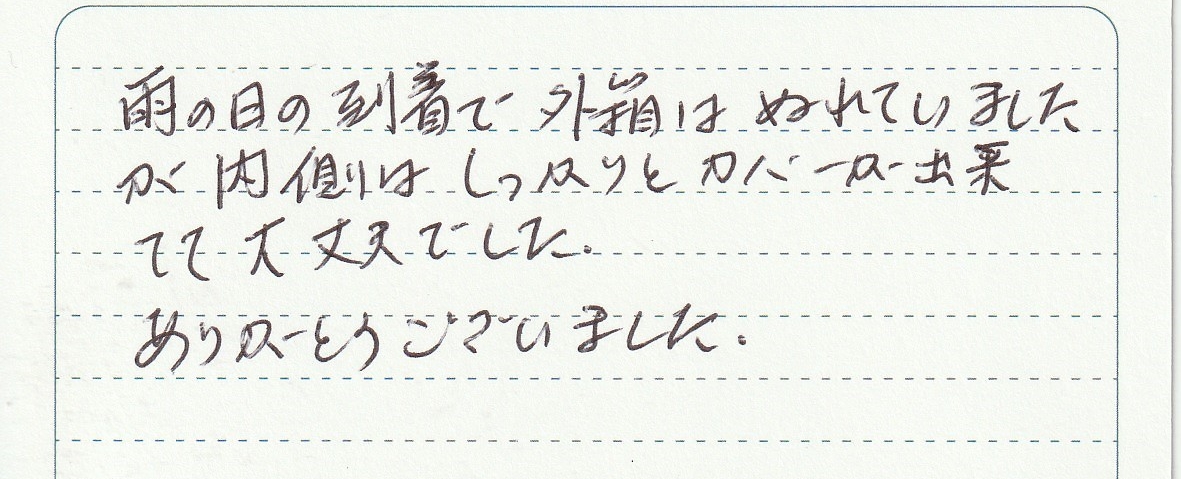 雨の日の到着で外箱はぬれていました
が内側はしっかりとカバーが出来
てて大丈夫でした.
ありがとうございました.